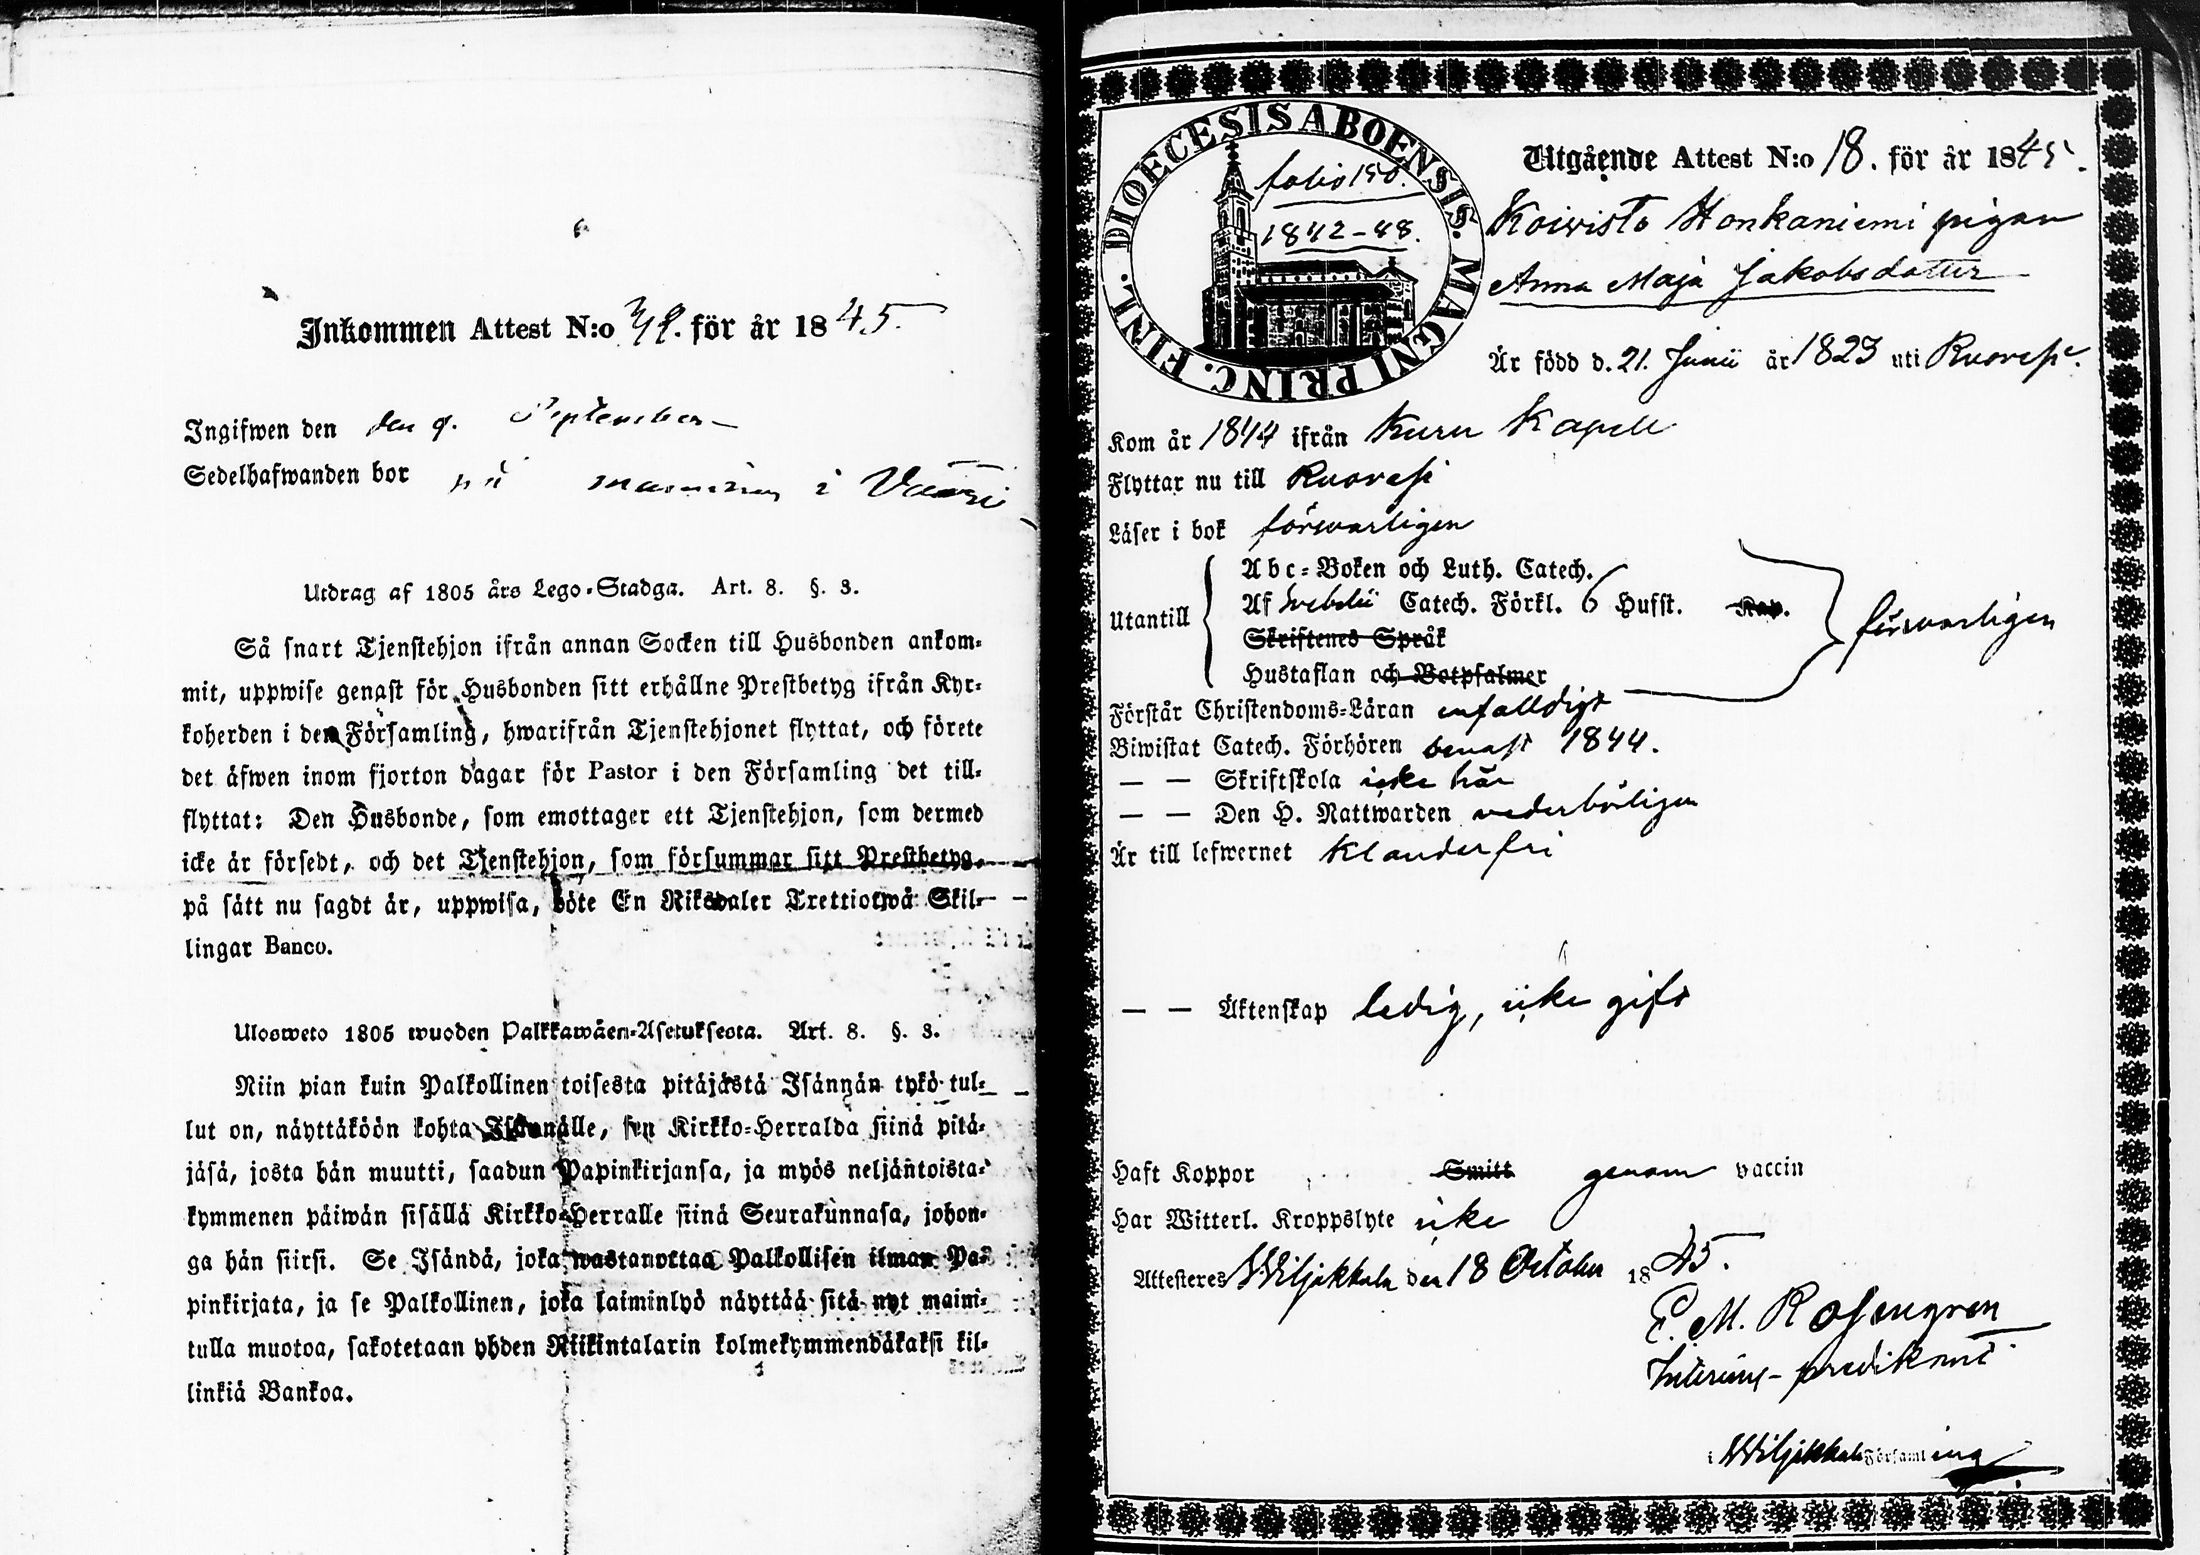 Inkommen Attest N:o för år 1845.
Ingifwen den den 9. September
Sedelhafwanden bor på i
Utdrag af 1805 års Lego-Stadga. Art. 8. §. 3.
Så snart Tjenstehjon ifrån annan Socken till Husbonden ankom-
mit, uppwise genast för Husbonden sitt erhållne Prestbetyg ifrån Kyr-
koherden i den Församling, hwarifrån Tjenstehjonet flyttat, och förete
det äfwen inom fjorton dagar för Pastor i den Församling det till-
flyttat: Den Husbonde, som emottager ett Tjenstehjon, som dermed
icke är försedt, och det Tjenstehjon, som försummar sitt Prestbetyg,
på sätt nu sagdt är, uppwisa, böte En Riksdaler Trettiotwå Skil-
lingar Banco.
Ulosweto 1805 wuoden Palkkawäen-Asetuksesta. Art. 8. §. 3.
Niin pian kuin Palkollinen toisesta pitäjästä Isännän tykö tul-
lut on, näyttäköön kohta Isännälle, sen Kirkko-Herralda siinä pitä-
jäsä, josta hän muutti, saadun Papinkirjansa, ja myös neljäntoista-
kymmenen päiwän sisällä Kirkko-Herralle siinä Seurakunnasa, johon-
ga hän siirsi. Se Isändä, joka wastanottaa Palkollisen ilman Pa-
pinkirjata, ja se Palkollinen, joka laiminlyö näyttää sitä nyt maini-
tulla muotoa, sakotetaan yhden Riikintalarin kolmekymmendäkaksi kil-
linkiä Bankoa.
DIOECESIS ABOENSIS. MAGNI PRINC. FINL.
folio 150.
1842-48.
Utgående Attest N:o 18. för år 1845.
Koivisto Honkaniemi pigan
Anna Maja Jakobsdotter
Är född d. 21. Junii år 1823 uti Ruovesi.
Kom år 1844 ifrån Kuru Kapell
Flyttar nu till Ruovesi
Läser i bok försvarligen
Utantill
Abc-Boken och Luth. Catech.
Af Svebelii Catech. Förkl. 6 Hufst. Kap.
Skriftenes Språk
Hustaflan och Botpsalmer
försvarligen
Förstår Christendoms-Läran enfalldigt
Biwistat Catech. Förhören senast 1844.
— — Skriftskola icke här
— — Den H. Nattwarden vederbörligen
Är till lefwernet klanderfri
— — Äktenskap ledig, icke gift
Haft Koppor Smitt genom vaccin
Har Witterl. Kroppslyte icke
Attesteres Wiljakkala den 18 October 1845.
E. M. Rosengren
Interims-predikant
i Wiljakkala Församling